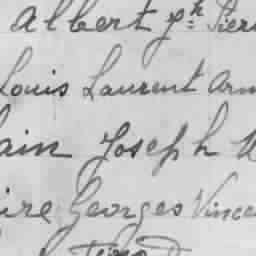 Albert ph Pierr
Louis Laurent Arm
ain Joseph
ire Georges Vince